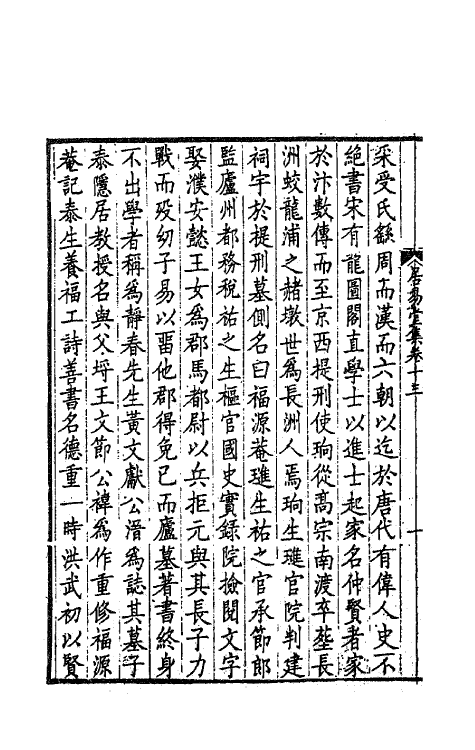 居易堂集卷十三
一
采受氏繇周而漢而六朝以迄於唐代有偉人史不
絕書宋有龍圖閣直學士以進士起家名仲賢者家
於汴數傳而至京西提刑使珦從高宗南渡卒塟長
洲蛟龍浦之赭墩世爲長洲人焉珦生璡官院判建
祠宇於提刑墓側名曰福源菴璡生祐之官承節郎
監廬州都務稅祐之生樞官國史實録院檢閱文字
娶濮安懿王女爲郡馬都尉以兵拒元與其長子力
戰而殁幼子易以畱他郡得免已而廬墓著書終身
不出學者稱爲靜春先生黃文獻公溍爲誌其墓子
泰隱居教授名與父埒王文節公禕爲作重修福源
菴記泰生養福工詩善書名德重一時洪武初以賢